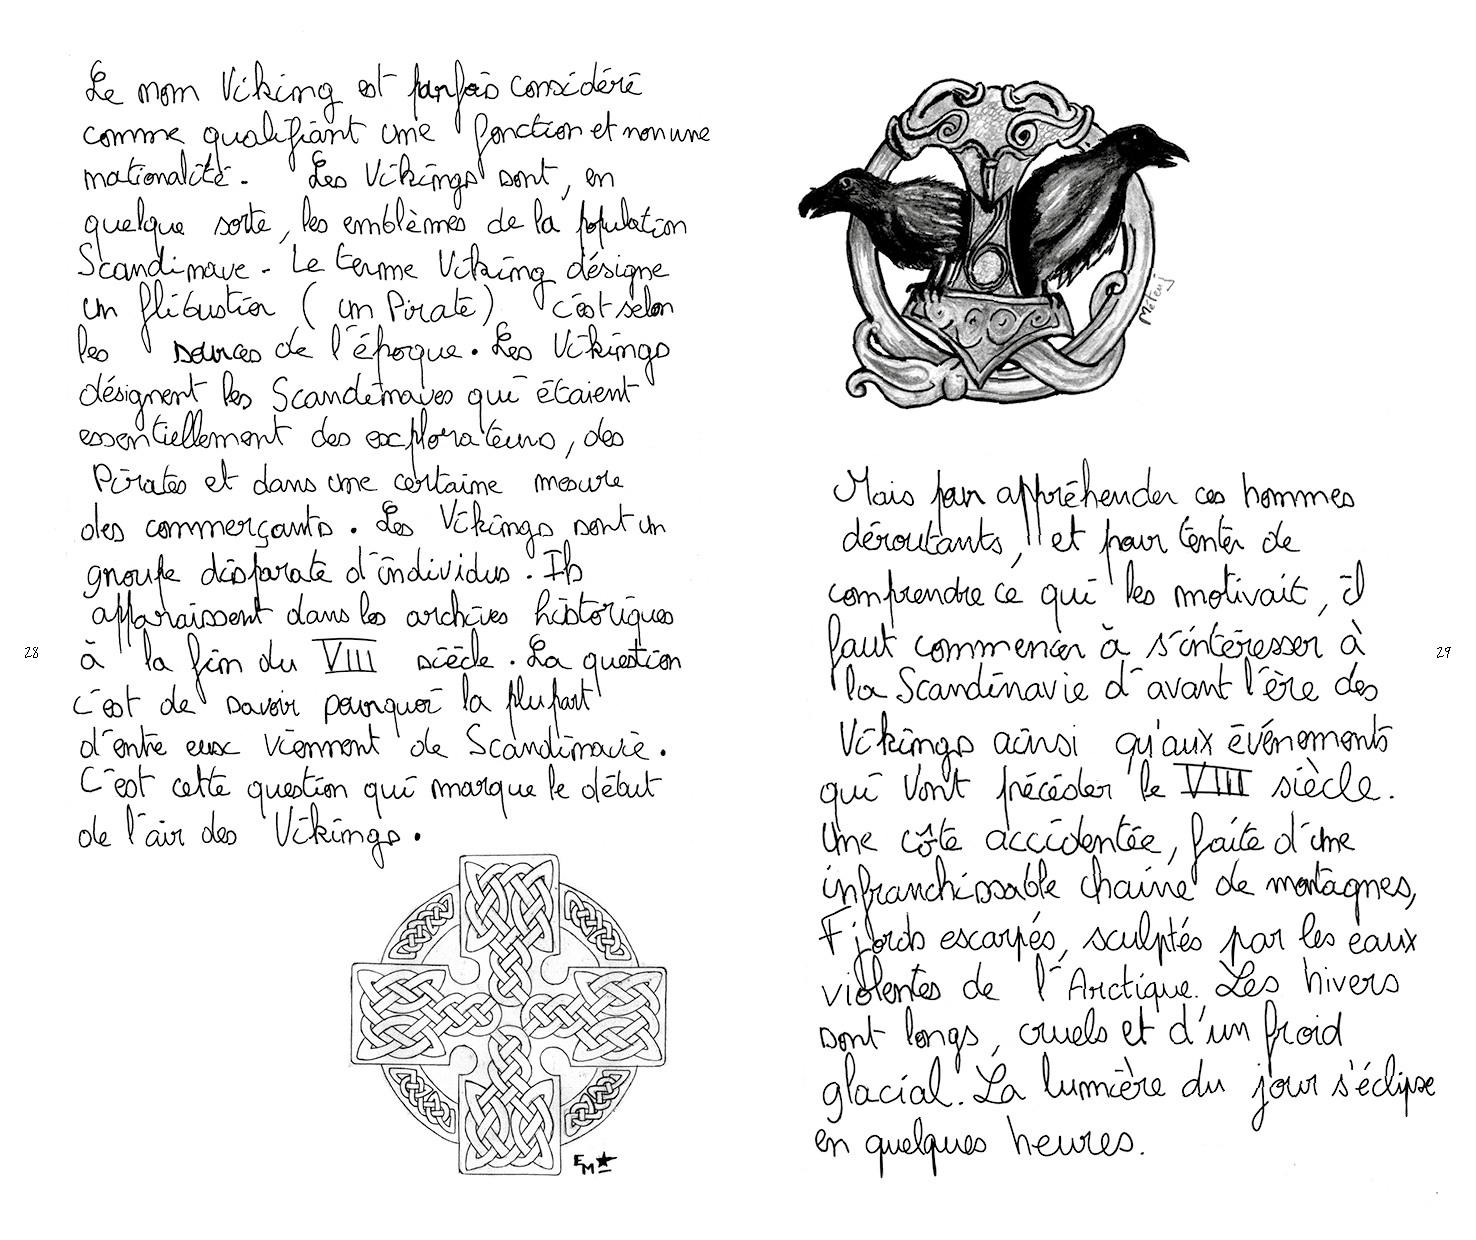 Le nom Viking est parfois considéré
comme qualifiant une fonction et non une
nationalité. Les Vikings sont, en
quelque sorte, les emblèmes de la population
Scandinave. Le terme Viking désigne
un flibustier (un Pirate) c'est selon
les sources de l'époque. Les Vikings
désignent les Scandinaves qui étaient
essentiellement des explorateurs, des
Pirates et dans une certaine mesure
des commerçants. Les Vikings sont un
groupe disparate d'individus. Ils
apparaissent dans les archives historiques
à la fin du VIII siècle. La question
c'est de savoir pourquoi la plupart
d'entre eux viennent de Scandinavie.
C'est cette question qui marque le début
de l'air des Vikings.
EM
28
Meteuj
Mais pour appréhender ces hommes
déroutants, et pour tenter de
comprendre ce qui les motivait, il
faut commencer à s'intéresser à
la Scandinavie d'avant l'ère des
Vikings ainsi qu'aux événements
qui vont précéder le VIII siècle.
Une côte accidentée, faite d'une
infranchissable chaine de montagnes,
Fjords escarpés, sculptés par les eaux
violentes de l'Arctique. Les hivers
sont longs, cruels et d'un froid
glacial. La lumière du jour s'éclipse
en quelques heures.
29